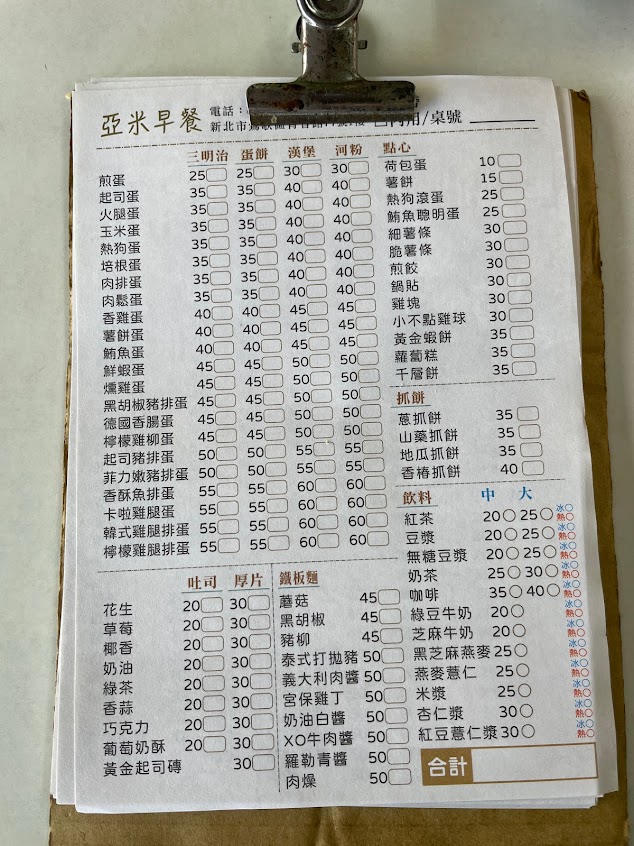 亞米早餐
電話：
新北市
內用/桌號
三明治 蛋餅 漢堡 河粉
煎蛋 25 25 30 30
起司蛋 35 35 40 40
火腿蛋 35 35 40 40
玉米蛋 35 35 40 40
熱狗蛋 35 35 40 40
培根蛋 35 35 40 40
肉排蛋 35 35 40 40
肉鬆蛋 35 35 40 40
香雞蛋 40 40 45 45
薯餅蛋 40 40 45 45
鮪魚蛋 40 40 45 45
鮮蝦蛋 45 45 50 50
燻雞蛋 45 45 50 50
黑胡椒豬排蛋 45 45 50 50
德國香腸蛋 45 45 50 50
檸檬雞柳蛋 45 45 50 50
起司豬排蛋 50 50 55 55
菲力嫩豬排蛋 50 50 55 55
香酥魚排蛋 55 55 60 60
卡啦雞腿蛋 55 55 60 60
韓式雞腿排蛋 55 55 60 60
檸檬雞腿排蛋 55 55 60 60
點心
荷包蛋 10
薯餅 15
熱狗滾蛋 25
鮪魚聰明蛋 25
細薯條 30
脆薯條 30
煎餃 30
鍋貼 30
雞塊 30
小不點雞球 30
黃金蝦餅 35
蘿蔔糕 35
千層餅 35
抓餅
蔥抓餅 35
山藥抓餅 35
地瓜抓餅 35
香椿抓餅 40
吐司 厚片
花生 20 30
草莓 20 30
椰香 20 30
奶油 20 30
綠茶 20 30
香蒜 20 30
巧克力 20 30
葡萄奶酥 20 30
黃金起司磚 30
鐵板麵
蘑菇 45
黑胡椒 45
豬柳 45
泰式打拋豬 50
義大利肉醬 50
宮保雞丁 50
奶油白醬 50
XO牛肉醬 50
羅勒青醬 50
肉燥 50
飲料 中 大
紅茶 20 25 冰 熱
豆漿 20 25 冰 熱
無糖豆漿 20 25 冰 熱
奶茶 25 30 冰 熱
咖啡 35 40 冰 熱
綠豆牛奶 20 冰 熱
芝麻牛奶 20 冰 熱
黑芝麻燕麥 25 冰 熱
燕麥薏仁 25 冰 熱
米漿 25 冰 熱
杏仁漿 30 冰 熱
紅豆薏仁漿 30 冰 熱
合計